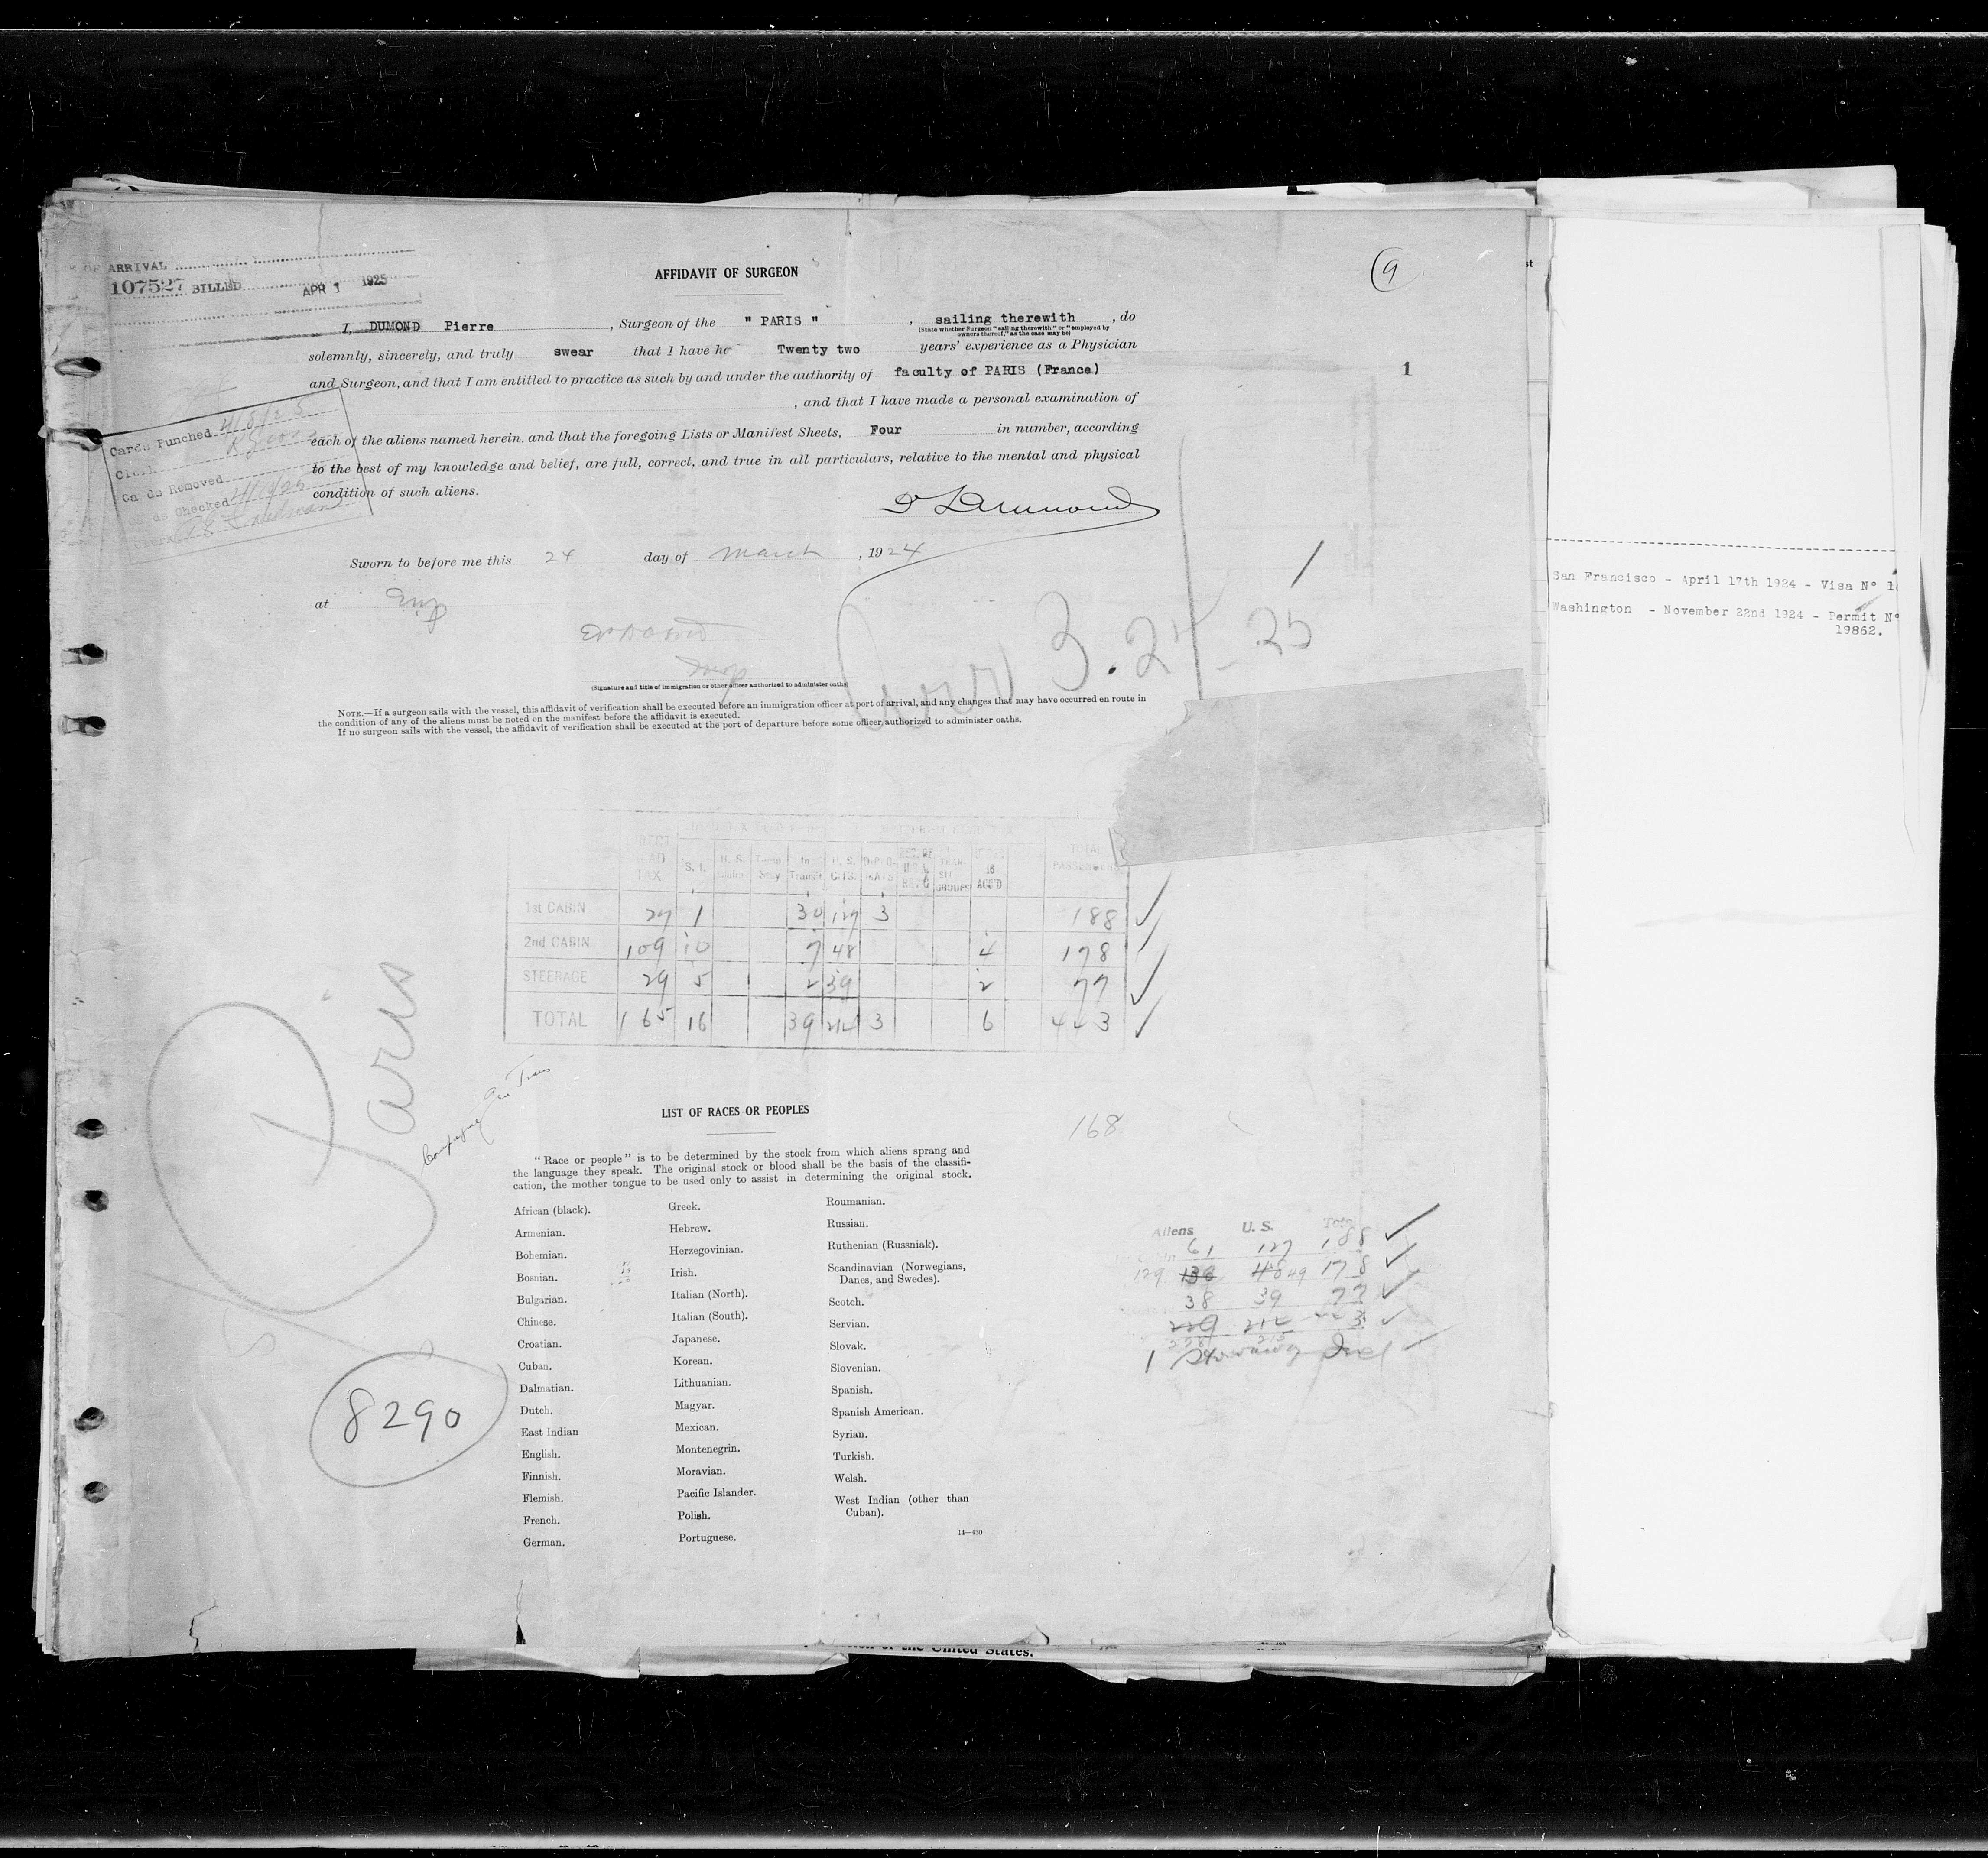 OF ARRIVAL
107527 BILLED APR 1 1925
AFFIDAVIT OF SURGEON
9
I, DUMOND Pierre, Surgeon of the " PARIS ", sailing therewith, do
(State whether Surgeon "sailing therewith" or "employed by
owners thereof," as the case may be)
solemnly, sincerely, and truly swear that I have ha Twenty two years' experience as a Physician
and Surgeon, and that I am entitled to practice as such by and under the authority of faculty of PARIS (France)
1
, and that I have made a personal examination of
each of the aliens named herein, and that the foregoing Lists or Manifest Sheets, Four in number, according
to the best of my knowledge and belief, are full, correct, and true in all particulars, relative to the mental and physical
condition of such aliens.
Cards Punched
Clerk
Cards Removed
Cards Checked
Clerk
Sworn to before me this 24 day of March, 1924
at
(Signature and title of immigration or other officer authorized to administer oaths)
Arr 3.24-25
NOTE.—If a surgeon sails with the vessel, this affidavit of verification shall be executed before an immigration officer at port of arrival, and any changes that may have occurred en route in
the condition of any of the aliens must be noted on the manifest before the affidavit is executed.
If no surgeon sails with the vessel, the affidavit of verification shall be executed at the port of departure before some officer authorized to administer oaths.
S. I. U. S. In Transit U. S. CITS. DIPLOMATS TRANSIT GROUPS 16 ACC'D TOTAL PASSENGERS
1st CABIN 27 1 30 127 3 188
2nd CABIN 109 10 7 48 4 178
STEERAGE 29 5 2 39 2 77
TOTAL 165 16 39 214 3 6 443
Paris
Compagnie Gle Trans
8290
LIST OF RACES OR PEOPLES
168
"Race or people" is to be determined by the stock from which aliens sprang and
the language they speak. The original stock or blood shall be the basis of the classifi-
cation, the mother tongue to be used only to assist in determining the original stock.
African (black).
Armenian.
Bohemian.
Bosnian.
Bulgarian.
Chinese.
Croatian.
Cuban.
Dalmatian.
Dutch.
East Indian
English.
Finnish.
Flemish.
French.
German.
Greek.
Hebrew.
Herzegovinian.
Irish.
Italian (North).
Italian (South).
Japanese.
Korean.
Lithuanian.
Magyar.
Mexican.
Montenegrin.
Moravian.
Pacific Islander.
Polish.
Portuguese.
Roumanian.
Russian.
Ruthenian (Russniak).
Scandinavian (Norwegians,
Danes, and Swedes).
Scotch.
Servian.
Slovak.
Slovenian.
Spanish.
Spanish American.
Syrian.
Turkish.
Welsh.
West Indian (other than
Cuban).
14—430
Aliens U. S. Total
61 127 188
129 130 48 49 178
38 39 77
229 214 443
228 215
1 Stowaway Incl
San Francisco - April 17th 1924 - Visa N°
Washington - November 22nd 1924 - Permit N°
19862.
of the United States.